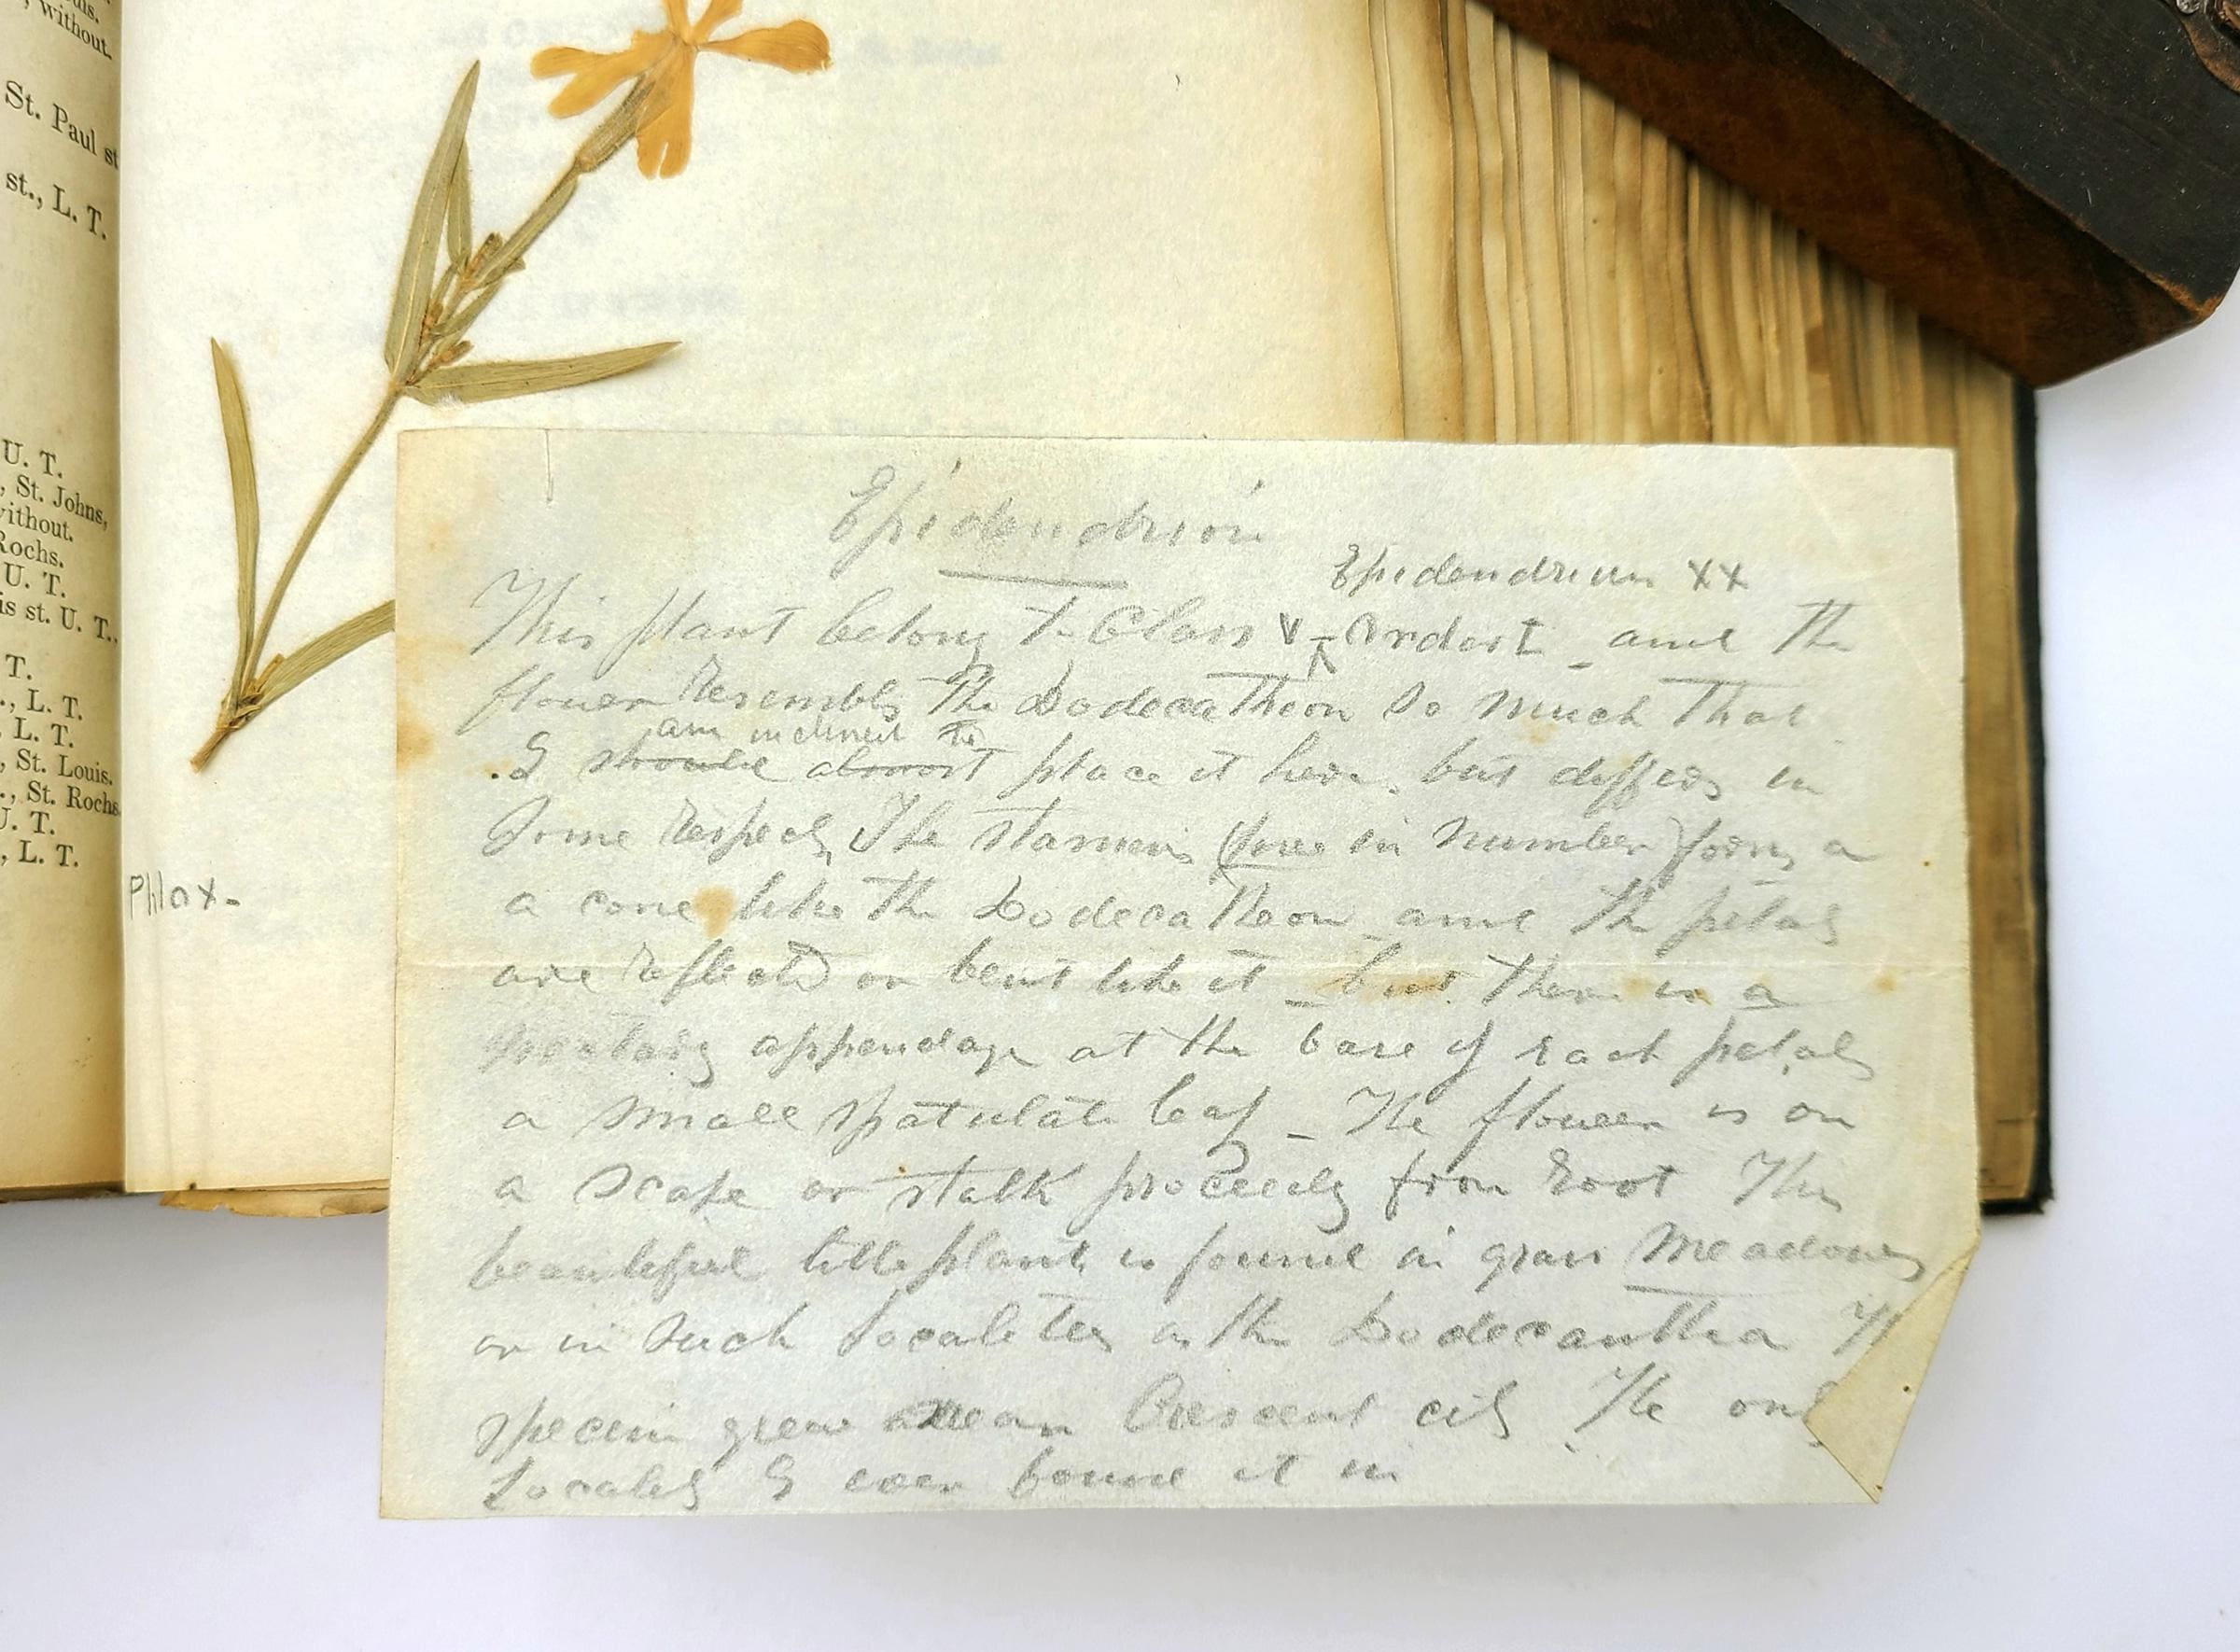 without.
St. Paul st
st., L. T.
U. T.
, St. Johns,
without.
Rochs.
U. T.
is st. U. T.
T.
., L. T.
L. T.
, St. Louis.
., St. Rochs.
U. T.
, L. T.
Phlox-
Epidendrion
Epidendrium xx
This plant belong to Class V - Order I - and the
flower resembls the Dodecatheon so much that
am inclined to
I should almost place it here, but differs in
some respects, The stamens (five in number) forms a
a cone like the Dodecatheon and the petals
are reflected or bent like it - but there is a
appendage at the base of each petals
a small spatulate leaf - The flower is on
a scape or stalk proceeding from root This
beautiful little plant is found in grass meadows
or in such localities as the Dodecanthea
specim grew near Crescent city The only
Locality I ever found it in